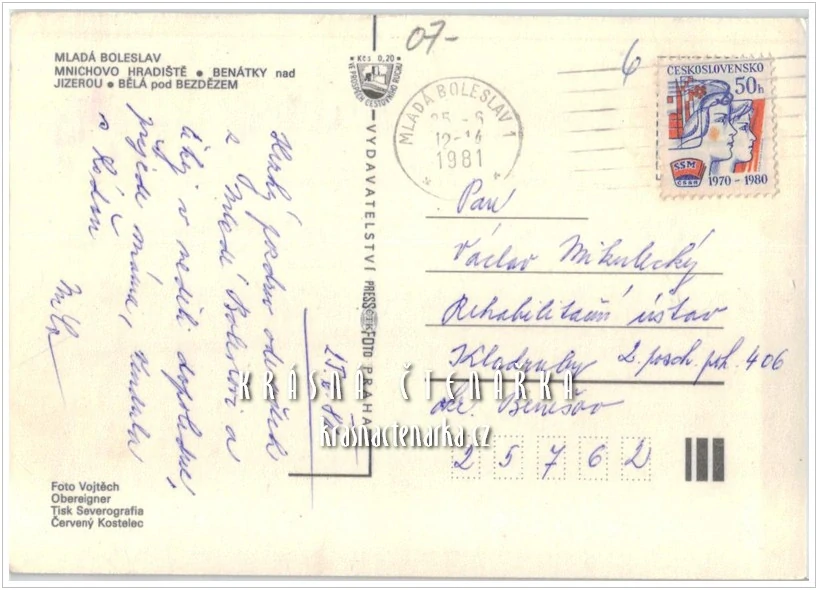 07-
6
MLADÁ BOLESLAV
MNICHOVO HRADIŠTĚ • BENÁTKY nad
JIZEROU • BĚLÁ pod BEZDĚZEM
Kčs 0,20
VE PROSPĚCH CESTOVNÍHO RUCHU
MLADÁ BOLESLAV 1
25 -6
12-14
1981
ČESKOSLOVENSKO
50h
SSM
ČSSR
1970 - 1980
VYDAVATELSTVÍ PRESSFOTO PRAHA
ČTK
Hezký pozdrav
z Mladé Boleslavi a
v neděli dopoledne,
přijede máma,
s
Pan
Václav Mikulecký
Rehabilitační ústav
Kladruby 2. posch. pok. 406
okr. Benešov
2 5 7 6 2
KRÁSNÁ ČTENÁRKA
krasnactenarka.cz
Foto Vojtěch
Obereigner
Tisk Severografia
Červený Kostelec